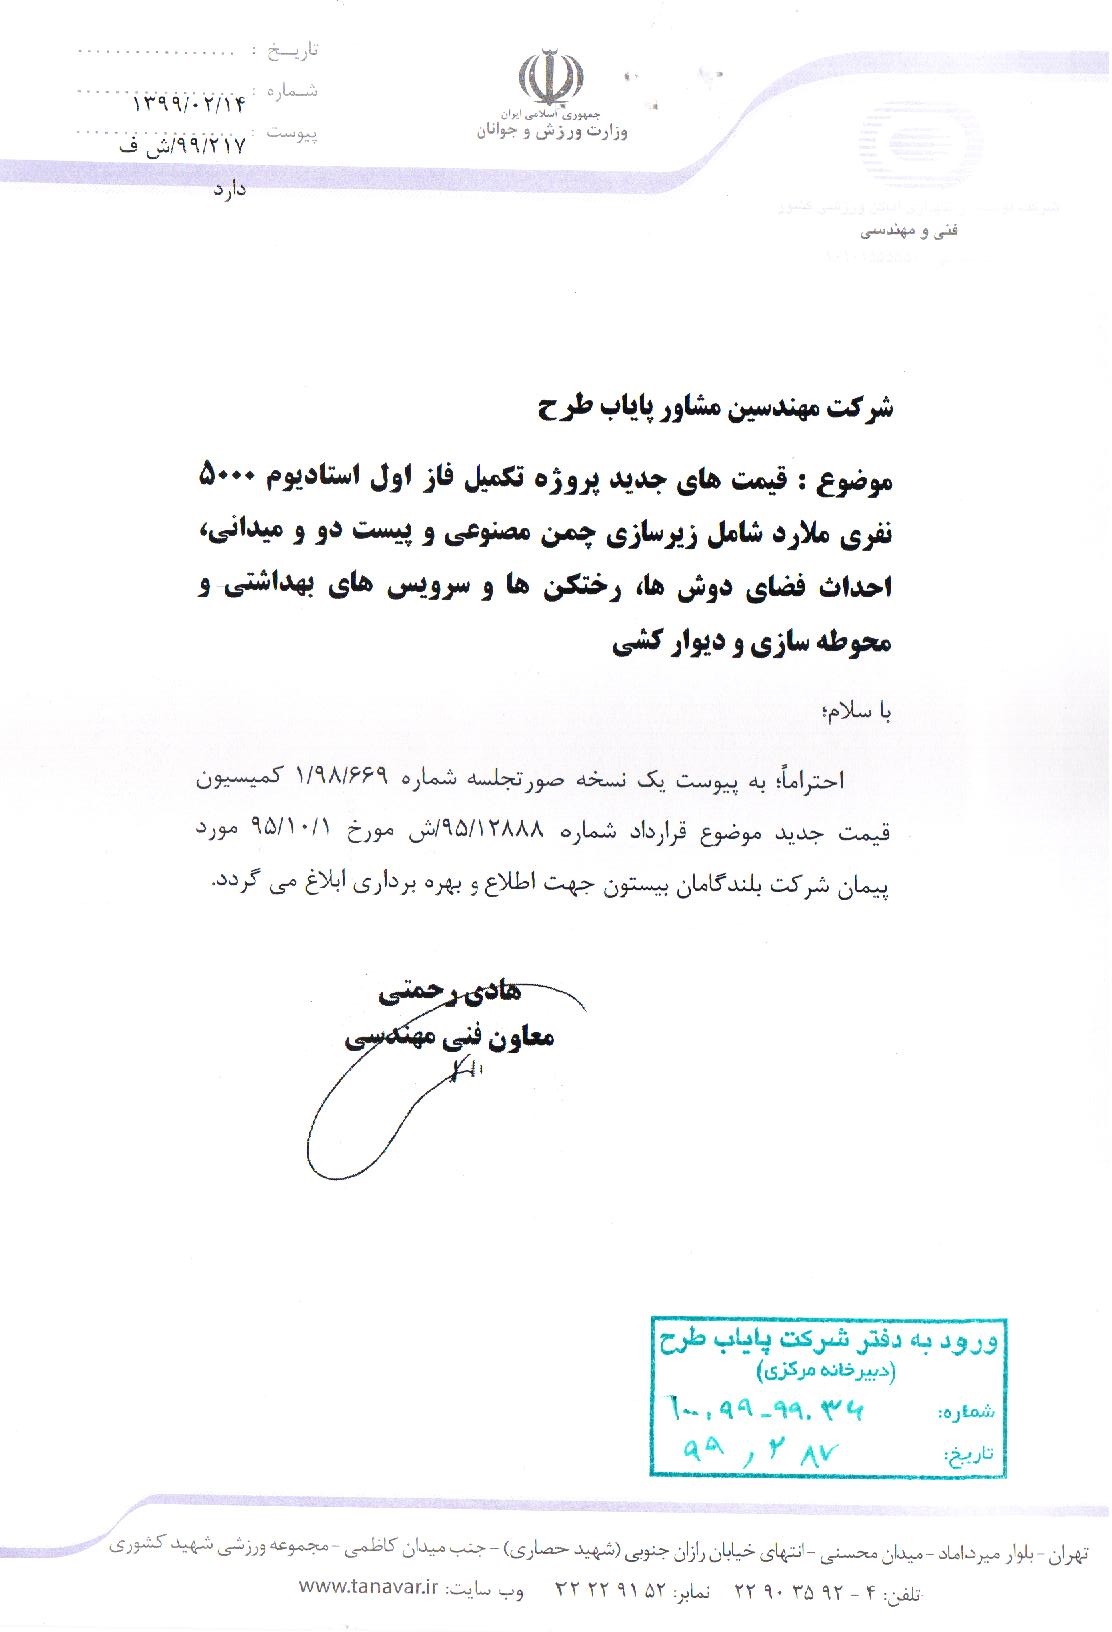 جمهوری اسلامی ایران
وزارت ورزش و جوانان
تاریخ :
شماره :
۱۳۹۹/۰۲/۱۴
پیوست :
۹۹/۲۱۷/ش ف
دارد
فنی و مهندسی
شرکت مهندسین مشاور پایاب طرح
موضوع : قیمت های جدید پروژه تکمیل فاز اول استادیوم ۵۰۰۰
نفری ملارد شامل زیرسازی چمن مصنوعی و پیست دو و میدانی،
احداث فضای دوش ها، رختکن ها و سرویس های بهداشتی و
محوطه سازی و دیوار کشی
با سلام؛
احتراماً؛ به پیوست یک نسخه صورتجلسه شماره ۱/۹۸/۶۶۹ کمیسیون
قیمت جدید موضوع قرارداد شماره ۹۵/۱۲۸۸۸/ش مورخ ۹۵/۱۰/۱ مورد
پیمان شرکت بلندگامان بیستون جهت اطلاع و بهره برداری ابلاغ می گردد.
هادی رحمتی
معاون فنی مهندسی
ورود به دفتر شرکت پایاب طرح
(دبیرخانه مرکزی)
شماره:
تاریخ:
تهران - بلوار میرداماد - میدان محسنی - انتهای خیابان رازان جنوبی (شهید حصاری) - جنب میدان کاظمی - مجموعه ورزشی شهید کشوری
تلفن: ۴ - ۹۲ ۳۵ ۹۰ ۲۲ نمابر: ۵۲ ۹۱ ۲۲ ۲۲ وب سایت: www.tanavar.ir